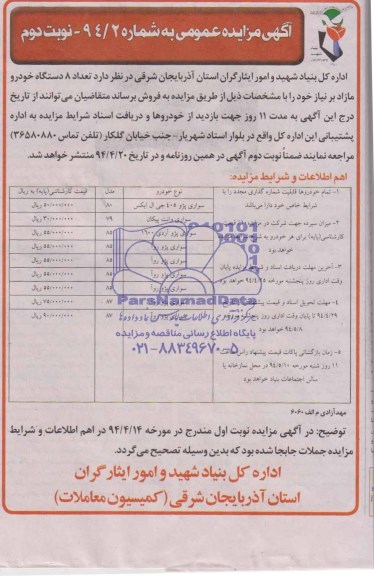 آگهی مزایده عمومی به شماره ۹۴/۲ - نوبت دوم
اداره کل بنیاد شهید و امور ایثارگران استان آذربایجان شرقی در نظر دارد تعداد ۸ دستگاه خودرو
مازاد بر نیاز خود را با مشخصات ذیل از طریق مزایده به فروش برساند متقاضیان می‌توانند از تاریخ
درج این آگهی به مدت ۱۱ روز جهت بازدید از خودروها و دریافت اسناد شرایط مزایده به اداره
پشتیبانی این اداره کل واقع در بلوار استاد شهریار - جنب خیابان گلکار (تلفن تماس ۳۶۵۸۰۸۸۰)
مراجعه نمایند ضمناً نوبت دوم آگهی در همین روزنامه و در تاریخ ۹۴/۴/۲۰ منتشر خواهد شد.
اهم اطلاعات و شرایط مزایده:
۱- تمام خودروها قابلیت شماره گذاری مجدد را با
شرایط خاص خود دارا می‌باشند
۲- میزان سپرده جهت شرکت در مزایده
کارشناسی (پایه) برای هر خودرو
خواهد بود
۳- آخرین مهلت دریافت اسناد و شرایط مزایده پایان
وقت اداری روز پنجشنبه مورخه ۹۴/۴/۲۵ خواهد بود
۴- مهلت تحویل اسناد و قیمت پیشنهادی
۹۴/۴/۲۹ تا پایان وقت اداری روز
۹۴/۵/۸ خواهد بود
۵- زمان بازگشائی پاکات قیمت پیشنهادی راس ساعت
۱۱ روز شنبه مورخه ۹۴/۵/۱۰ در محل نمازخانه یا
سالن اجتماعات بنیاد خواهد بود
نوع خودرو مدل قیمت کارشناسی (پایه) به ریال
سواری پژو ۴۰۵ جی ال ایکس ۸۰
سواری وانت پیکان ۷۹
سواری پژو آردی ۱۶۰۰
ParsNamadData
پایگاه اطلاع رسانی مناقصه و مزایده
۰۲۱-۸۸۳۴۹۶۷۰-۵
مهد آزادی م الف ۶۰۶۰
توضیح: در آگهی مزایده نوبت اول مندرج در مورخه ۹۴/۴/۱۴ در اهم اطلاعات و شرایط
مزایده جملات جابجا شده بود که بدین وسیله تصحیح می‌گردد.
اداره کل بنیاد شهید و امور ایثارگران
استان آذربایجان شرقی (کمیسیون معاملات)